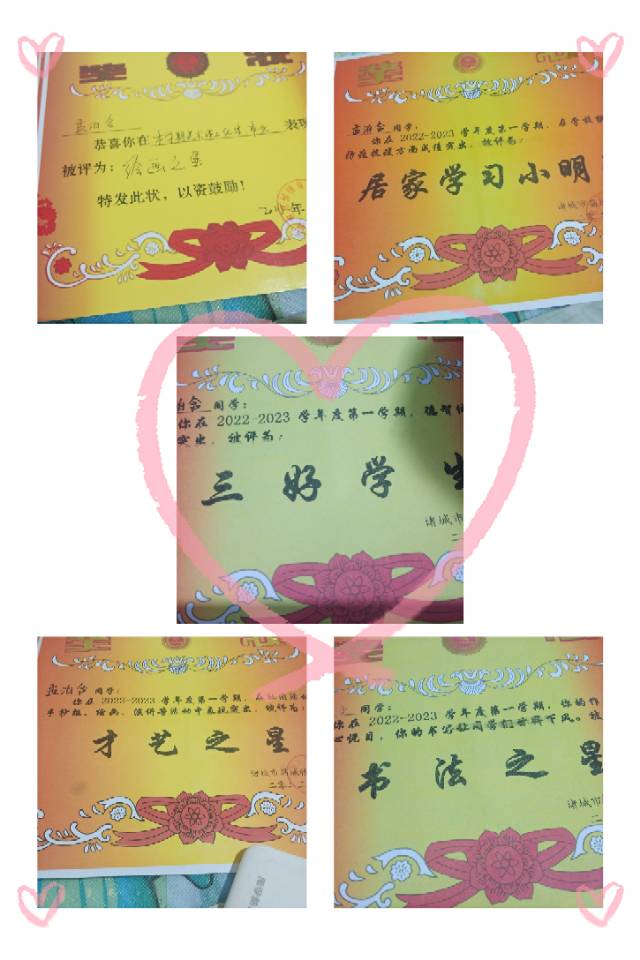 奖 状
恭喜你在
表现
被评为：绘画之星
特发此状，以资鼓励！
年
同学：
你在 2022-2023 学年度第一学期，在学校
防疫抗疫方面成绩突出，被评为：
居家学习小明
诸城市
同学：
你在 2022-2023 学年度第一学期，德智
突出，被评为：
三好学生
诸城市
二
同学：
你在 2022-2023 学年度第一学期，在
手抄报、绘画、演讲等活动中表现突出，被评为：
才艺之星
诸城市
二零二二
同学：
你在 2022-2023 学年度第一学期，你的作
心悦目，你的书写让同学们甘拜下风。被
书法之星
诸城市
二